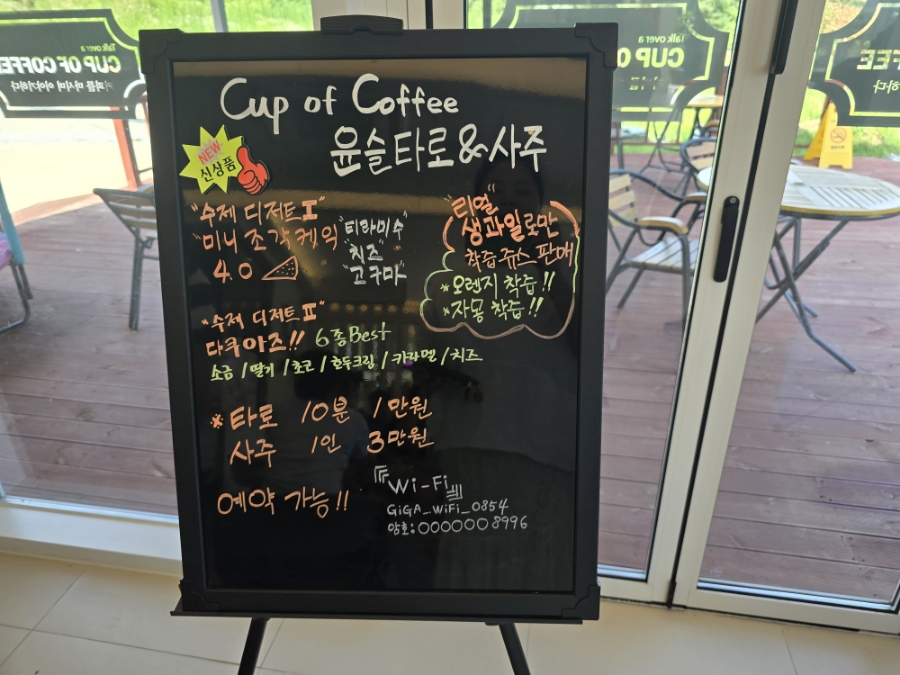 Talk over a
CUP OF COFFEE
커피를 마시며 이야기하다
Talk over a
CUP OF
Cup of Coffee
윤슬타로&사주
NEW
신상품
"수제 디저트I"
"미니 조각케익
4.0
"티라미수
"치즈"
"고구마"
"리얼"
생과일로만
착즙쥬스 판매
*오렌지 착즙!!
*자몽 착즙!!
"수제 디저트II"
다쿠아즈!! 6종Best
소금/딸기/초코/호두크림/카라멜/치즈
*타로 10분 1만원
사주 1인 3만원
예약 가능!!
Wi-Fi
GiGA_WiFi_0854
암호:0000008996